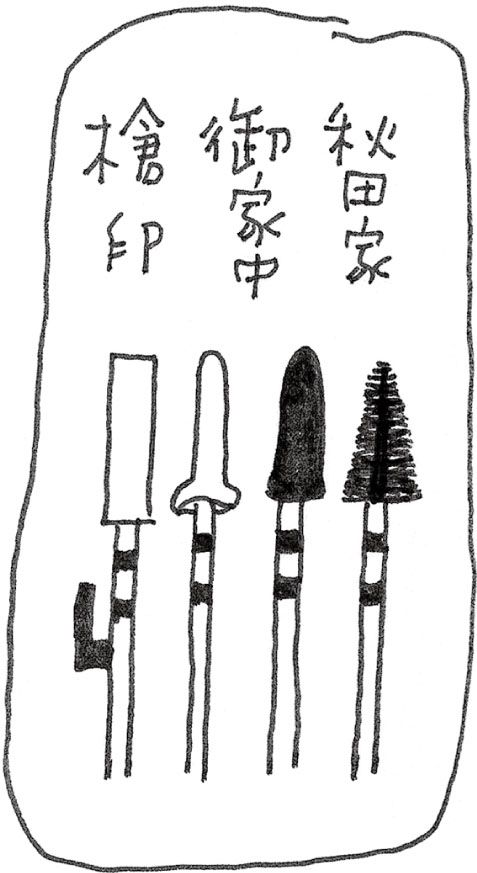 秋田家
御家中
槍印